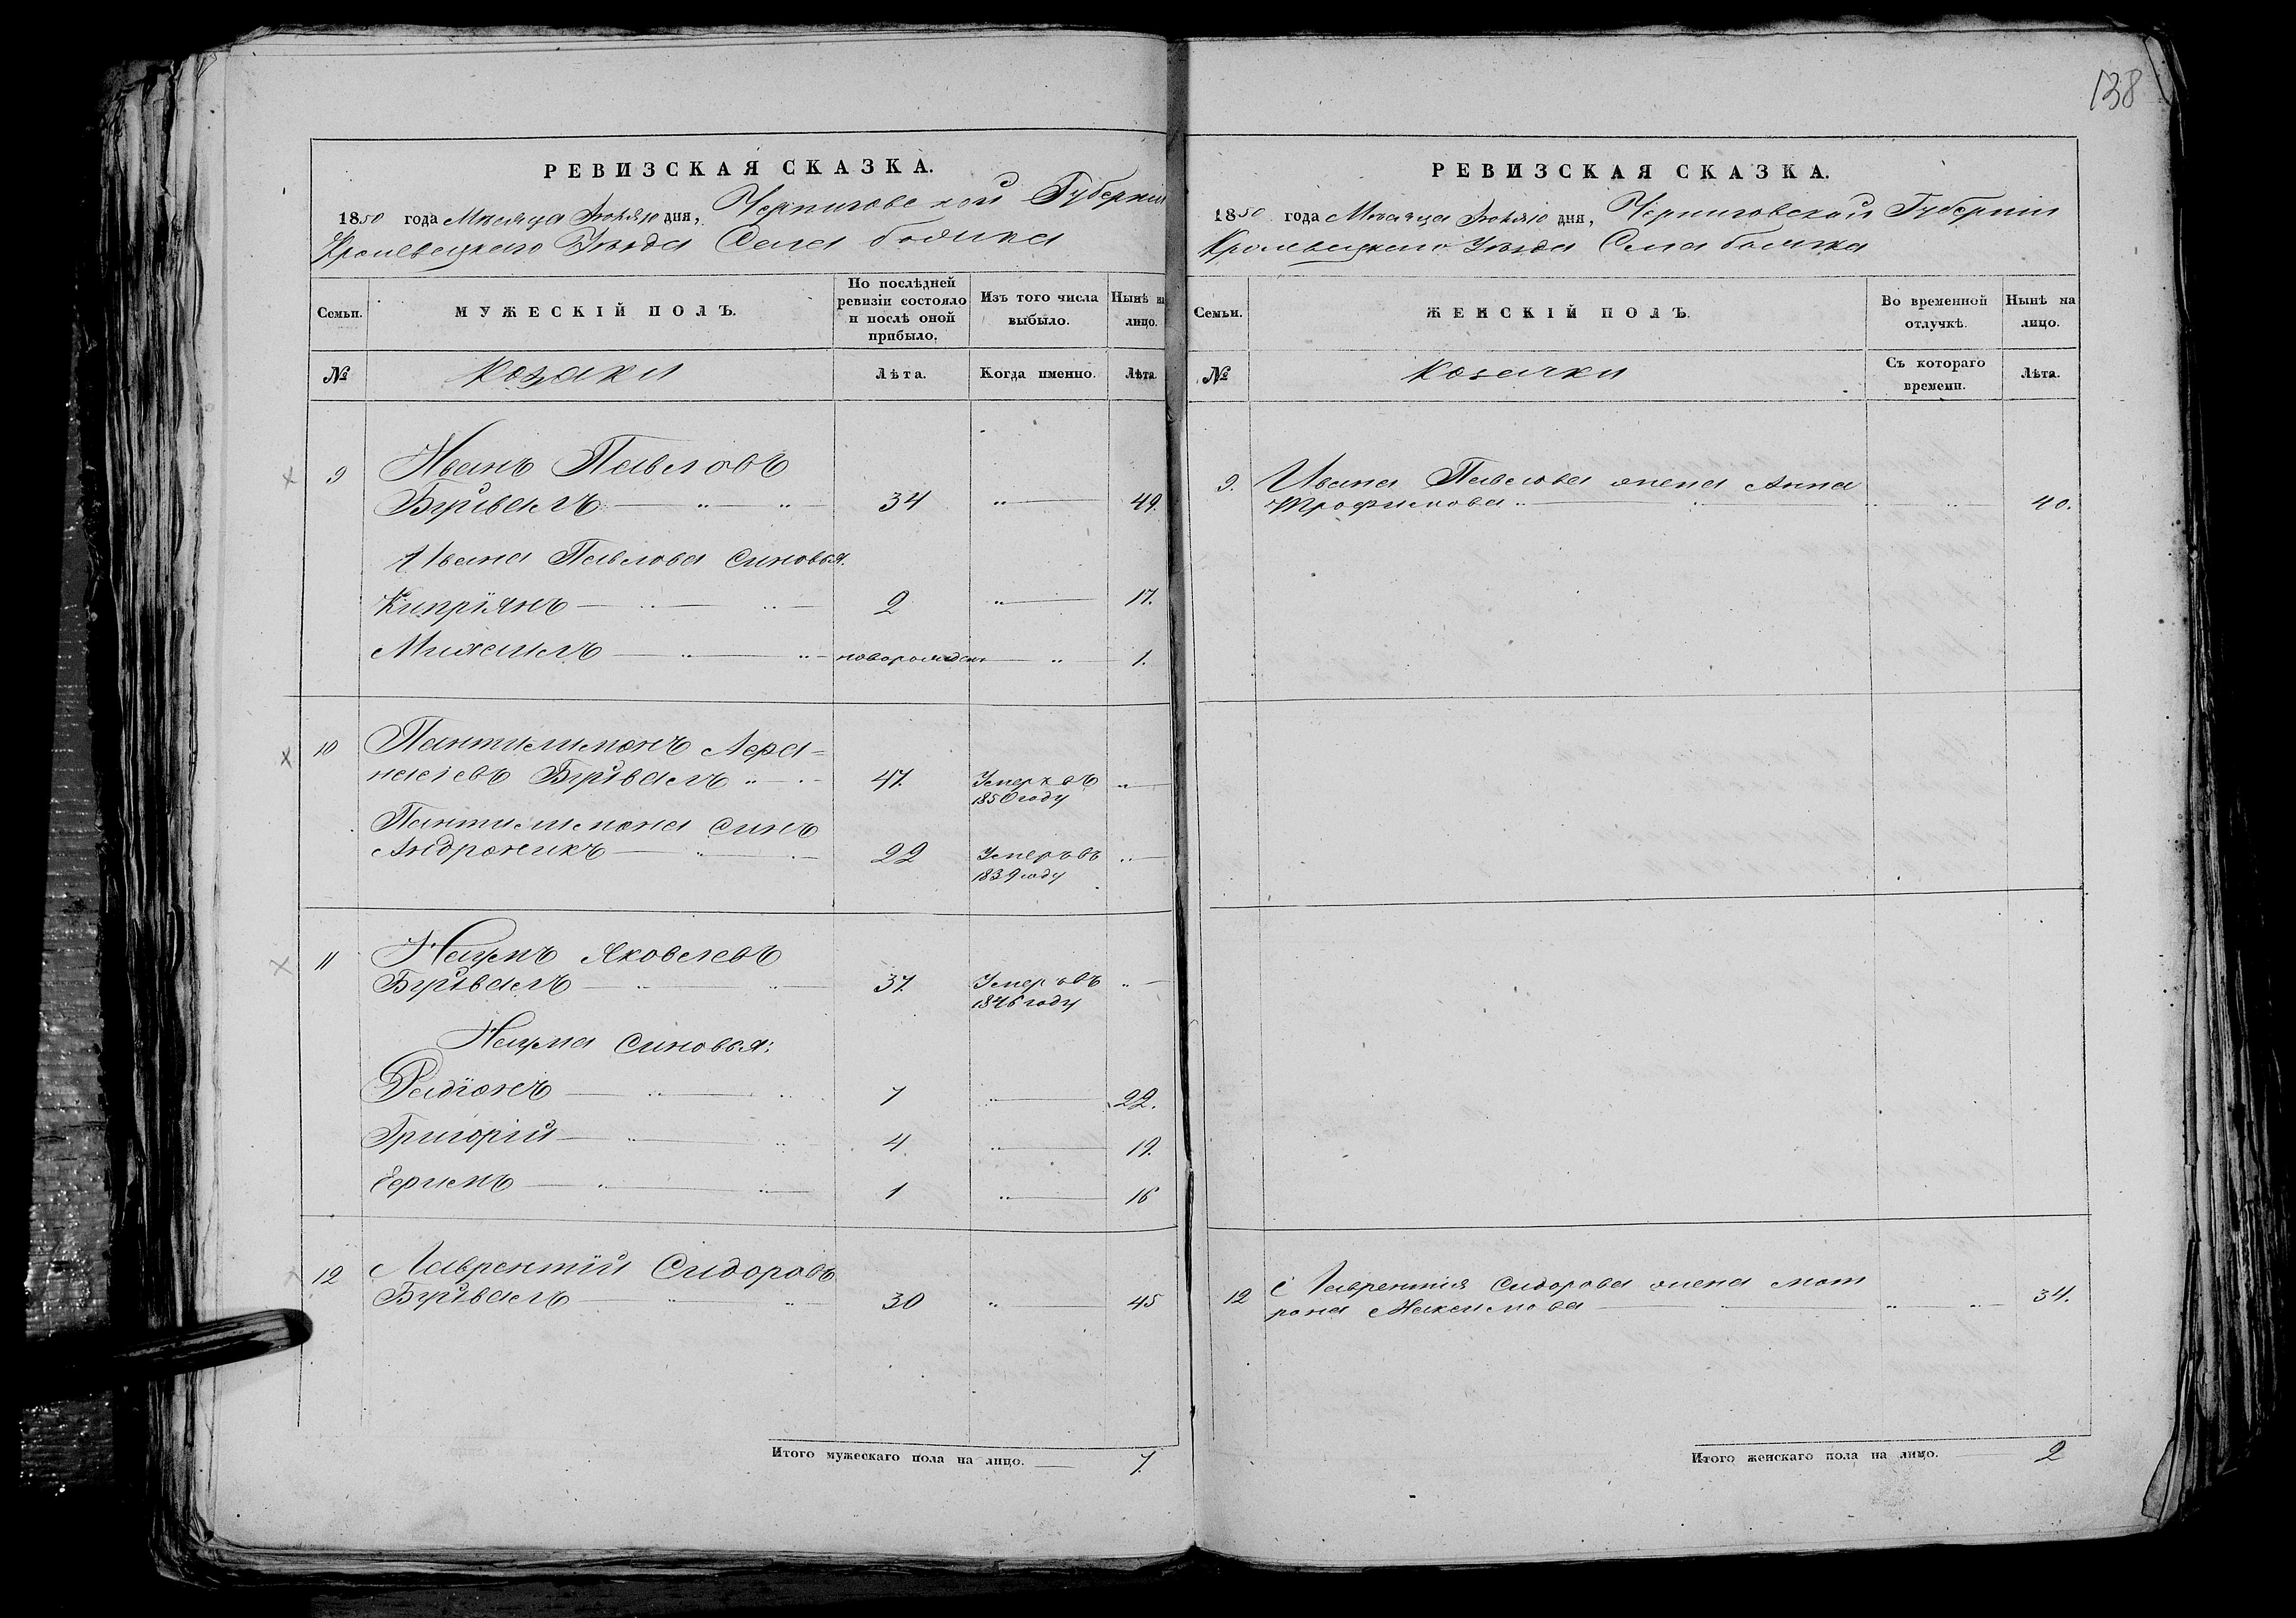 138
РЕВИЗСКАЯ СКАЗКА.
1850 года Месяца Іюля 10 дня, Черниговской Губерніи
Кролевецкаго Уезда Села
МУЖЕСКІЙ ПОЛЪ.
Семьи.
По послѣдней
ревизіи состояло
и послѣ оной
прибыло.
Изъ того числа
выбыло.
Нынѣ на
лицо.
№
Козаки
Лѣта.
Когда именно.
Лѣта.
9
Иванъ Павловъ
Буйвалъ 34 49.
Ивана Павлова синовья.
Кипріянъ 2 17.
Михаилъ новорожден 1.
10 Пантилимонъ Афа=
насіевъ Буйвалъ 47. Умеръ въ
1850 году
Пантилимона синъ
Андроникъ 22 Умеръ въ
1839 году
11 Наумъ Яковлевъ
Буйвалъ 37. Умеръ въ
1846 году
Наума синовья:
Радіонъ 7 22.
Григорій 4 19.
Ефимъ 1 16
12 Лаврентій Сидоровъ
Буйвалъ 30 45
Итого мужескаго пола на лицо. 7.
РЕВИЗСКАЯ СКАЗКА.
1850 года Месяца Іюля 10 дня, Черниговской Губерніи
Кролевецкаго Уезда Села
Семьи.
ЖЕНСКІЙ ПОЛЪ.
Во временной
отлучкѣ.
Нынѣ на
лицо.
№
Козачки
Съ котораго
времени.
Лѣта.
9. Ивана Павлова жена Анна
Трофимова 40.
12 Лаврентія Сидорова жена Мат
рона Максимова 34.
Итого женскаго пола на лицо. 2